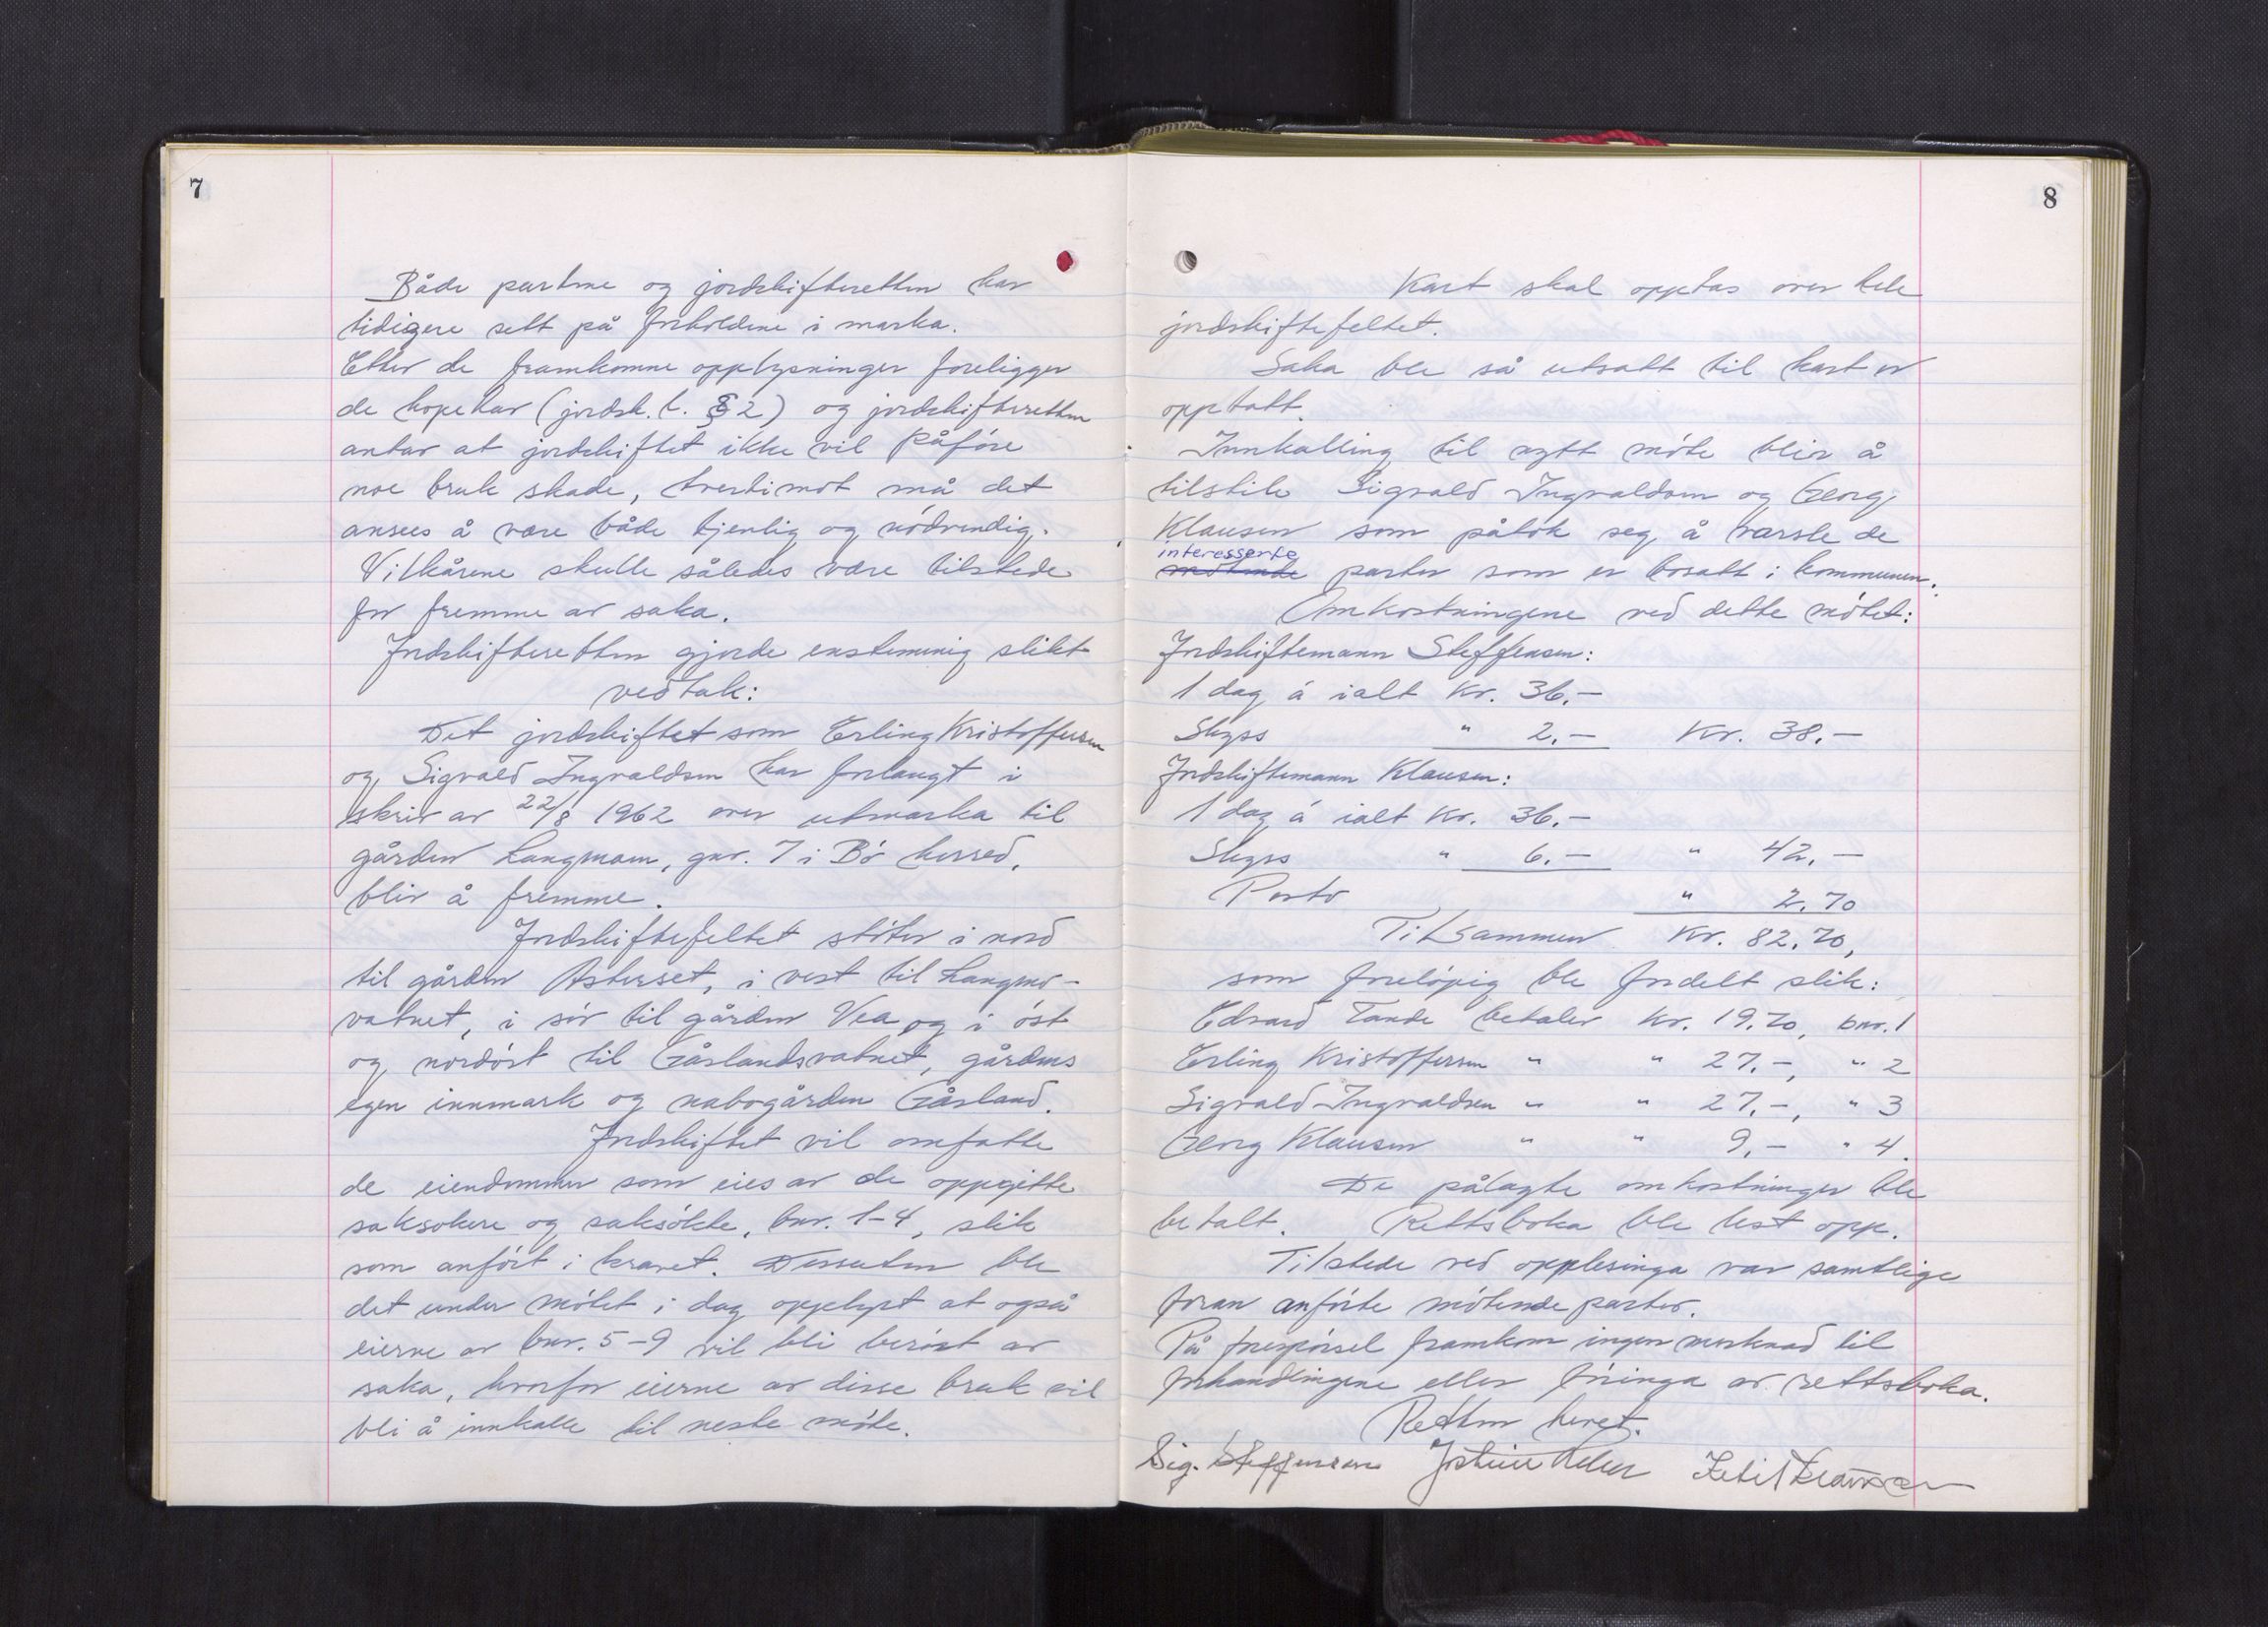 7
Både partene og jordskifteretten har
tidigere sett på forholdene i marka.
Etter de framkomne opplysninger foreligger
de kopehav (jordsk. l. § 2) og jordskifteretten
antar at jordskiftet ikke vil påføre
noe bruk skade, tvertimot må det
ansees å være både tjenlig og nødvendig.
Vilkårene skulle således være tilstede
for fremme av saka.
Jordskifteretten gjorde enstemmig slikt
vedtak:
Det jordskiftet som Erling Kristoffersen
og Sigvald Ingvaldsen har forlangt i
skriv av 22/8 1962 over utmarka til
gården Langmoen, gnr. 7 i Bø herred,
blir å fremme.
Jordskiftefeltet støter i nord
til gården Asterset, i vest til Langmo-
vatnet, i sør til gården Vea og i øst
og nordøst til Gåslandsvatnet, gårdens
egen innmark og nabogården Gåsland.
Jordskiftet vil omfatte
de eiendommer som eies av de oppgitte
saksøkere og saksøkte, bnr. 1-4, slik
som anført i kravet. Dessuten ble
det under møtet i dag opplyst at også
eierne av bnr. 5-9 vil bli berørt av
saka, hvorfor eierne av disse bruk vil
bli å innkalle til neste møte.
8
Kart skal opptas over hele
jordskiftefeltet.
Saka ble så utsatt til kart er
opptatt.
Innkalling til nytt møte blir å
tilstile Sigvald Ingvaldsen og Georg
Klausen som påtok seg å varsle de
interesserte
møtende parter som er bosatt i kommunen.
Omkostningene ved dette møtet:
Jordskiftemann Steffensen:
1 dag á ialt kr. 36.-
Skyss " 2.- Kr. 38.-
Jordskiftemann Klausen:
1 dag á ialt kr. 36.-
Skyss " 6.- " 42.-
Porto " 2.70
Tilsammen kr. 82.70,
som foreløpig ble fordelt slik:
Edvard Tande betaler kr. 19.70, bnr. 1
Erling Kristoffersen " " 27.-, " 2
Sigvald Ingvaldsen " " 27.-, " 3
Georg Klausen " " 9.- " 4.
De pålagte omkostninger ble
betalt. Rettsboka ble lest opp.
Tilstede ved opplesinga var samtlige
foran anførte møtende parter.
På forespørsel framkom ingen merknad til
forhandlingene eller føringa av rettsboka.
Retten hevet.
Sig. Steffensen Jostein